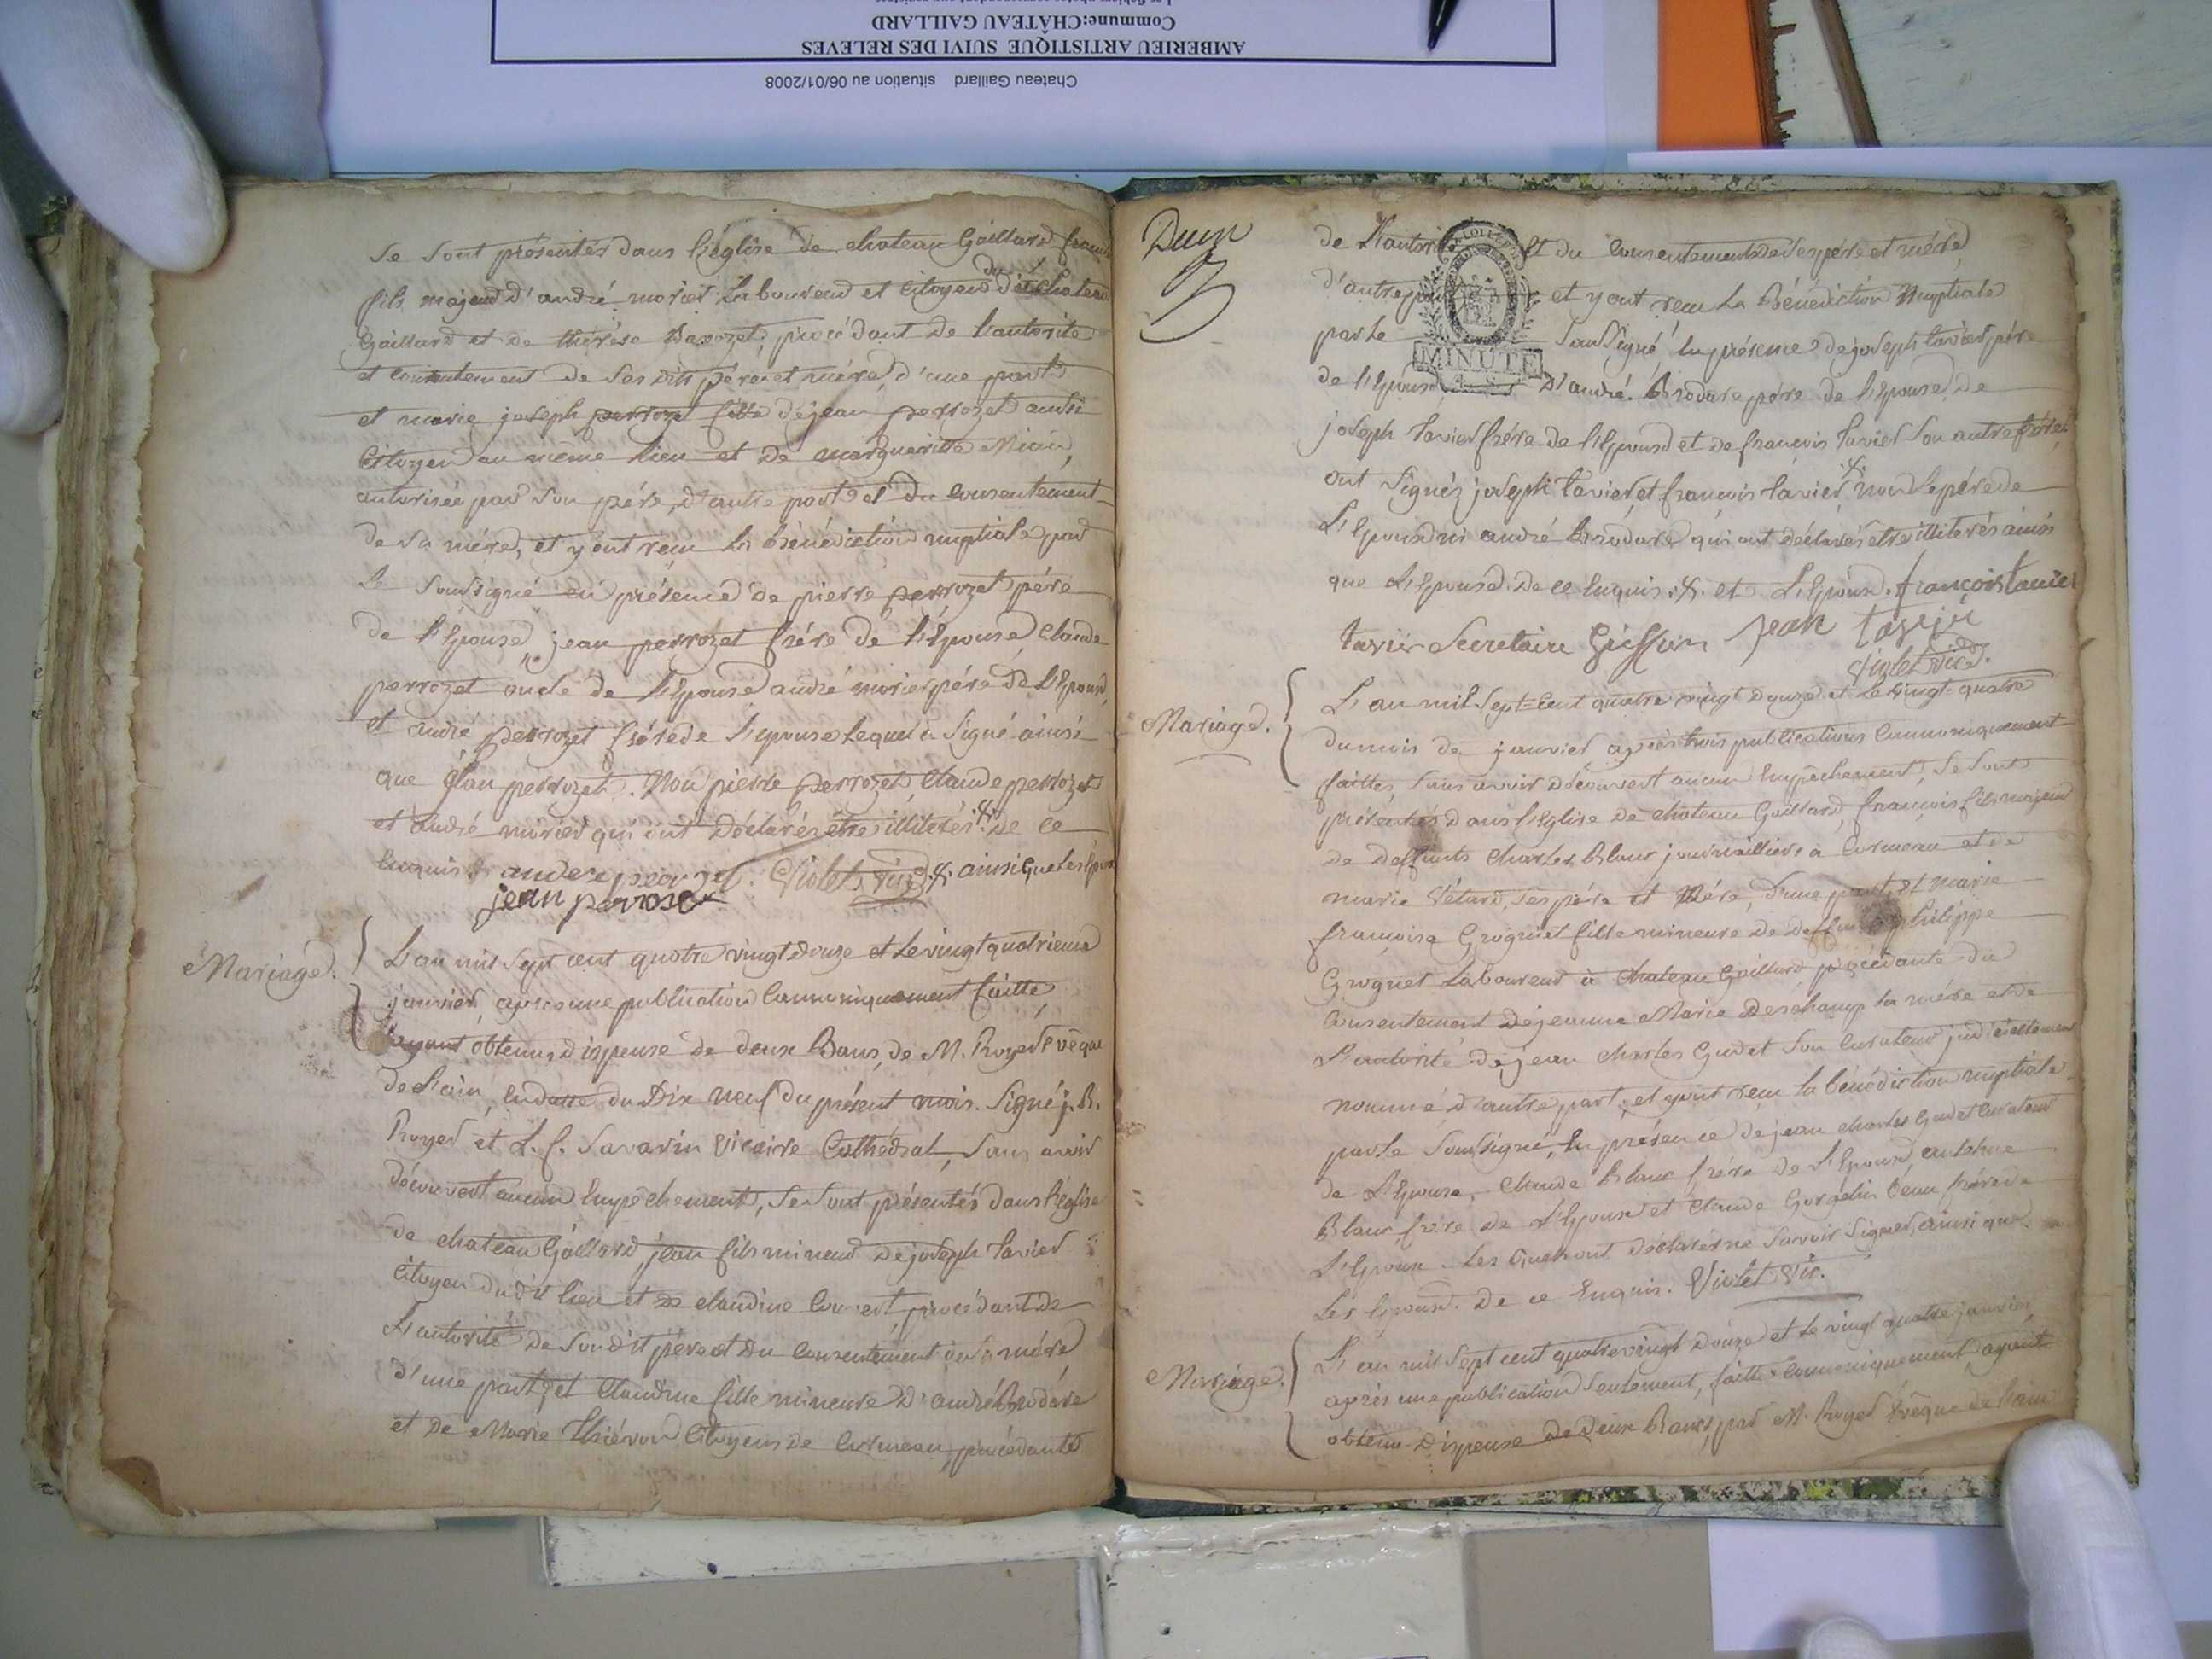 AMBERIEU ARTISTIQUE SUIVI DES RELEVES
Commune:CHÂTEAU GAILLARD
Chateau Gaillard situation au 06/01/2008
Se sont présentés dans l'église de chateau Gaillard
fils majeur d'andré morier Laboureur et Citoyen du dit chateau
Gaillard et de thérèse procédant de l'autorité
et consentement de ses dits père et mère, d'une part
et marie joseph perrozet fille de jean perrozet aussi
Citoyen au même Lieu et de margueritte
autorisée par son père, d'autre part et du consentement
de sa mère, et y ont reçu la bénédiction nuptiale par
le soussigné en présence de pierre perrozet père
de l'Epouse, jean perrozet frère de l'Epouse, Claude
perrozet oncle de l'Epouse andré morier père de l'Epoux,
et andré perrozet frère de l'epouse lequel a Signé ainsi
que jean perrozet. Non pierre perrozet, Claude perrozet
et andré morier qui ont Déclarés etre illiterés .x. de ce
Enquis. Violet vic. .x. ainsi que les
jean perrose
Mariage.
L'an mil Sept cent quatre vingt Douze et le vingt quatrieme
janvier, après une publication Cannoniquement faitte,
ayant obtenus dispense de deux Bans, de M. Royer Evêque
de l'ain, en du Dix neuf du présent mois. Signé j. B.
Royer et L. f. Savarin Vicaire Cathédral, Sans avoir
découvert aucun Empêchement, se sont présentés dans l'église
de chateau Gaillard, jean fils mineur de joseph tavier
Citoyen du dit lieu et de claudine procédant de
L'autorité de son dit père et Du consentement de sa mère
d'une part, et Claudine fille mineure d'andré Brodare
et De Marie Citoyens de Cormeau, procédante
Deux
3
de L'autorité et du consentement de ses père et mère,
d'autre part et y ont reçu la Bénédiction Nuptiale
par le Soussigné En présence de joseph tavier père
de l'Epoux D'andré Brodare père de l'Epouse, de
joseph tavier frère de l'Epoux et de françois tavier Son autre frère,
ont Signés joseph tavier et françois tavier, .x. non le père de
L'Epoux ni andré Brodare qui ont déclarés etre illiterés ainsi
que L'Epouse. De ce Enquis .x. et L'Epoux. françois tavier
tavier Secretaire Jean
Violet vic.
Mariage.
L'an mil Sept-cent quatre vingt Douze et le vingt-quatre
du mois de janvier après trois publications Cannoniquement
faittes, sans avoir découvert aucun Empêchement, Se sont
présentés dans l'Eglise de chateau Gaillard, françois fils majeur
de deffunts Charles Blanc journaillier à Cormeau et de
marie ses père et Mère, d'une part, et marie
françoise Grognet fille mineure de deffunt philippe
Grognet Laboureur à Chateau Gaillard procédante du
Consentement de jeanne Marie Deschamp sa mère et de
L'autorité de jean charles Gudet son Curateur judiciellement
nommé d'autre part, et y ont reçu la bénédiction nuptiale
par le Soussigné, En présence de jean charles Gudet Curateur
de L'Epouse, Claude Blanc frère de l'Epoux, antoine
Blanc frère de L'Epoux et Claude beau frère de
L'Epoux. Les quels ont déclarés ne Savoir Signer, ainsi que
Les Epoux. De ce Enquis. Violet Vic.
Mariage.
L'an mil Sept cent quatre vingt Douze et le vingt quatre janvier
après une publication Seulement, faitte Cannoniquement ayant
obtenu dispense de Deux Bans, par M. Royer Evêque de l'ain
MINUTE